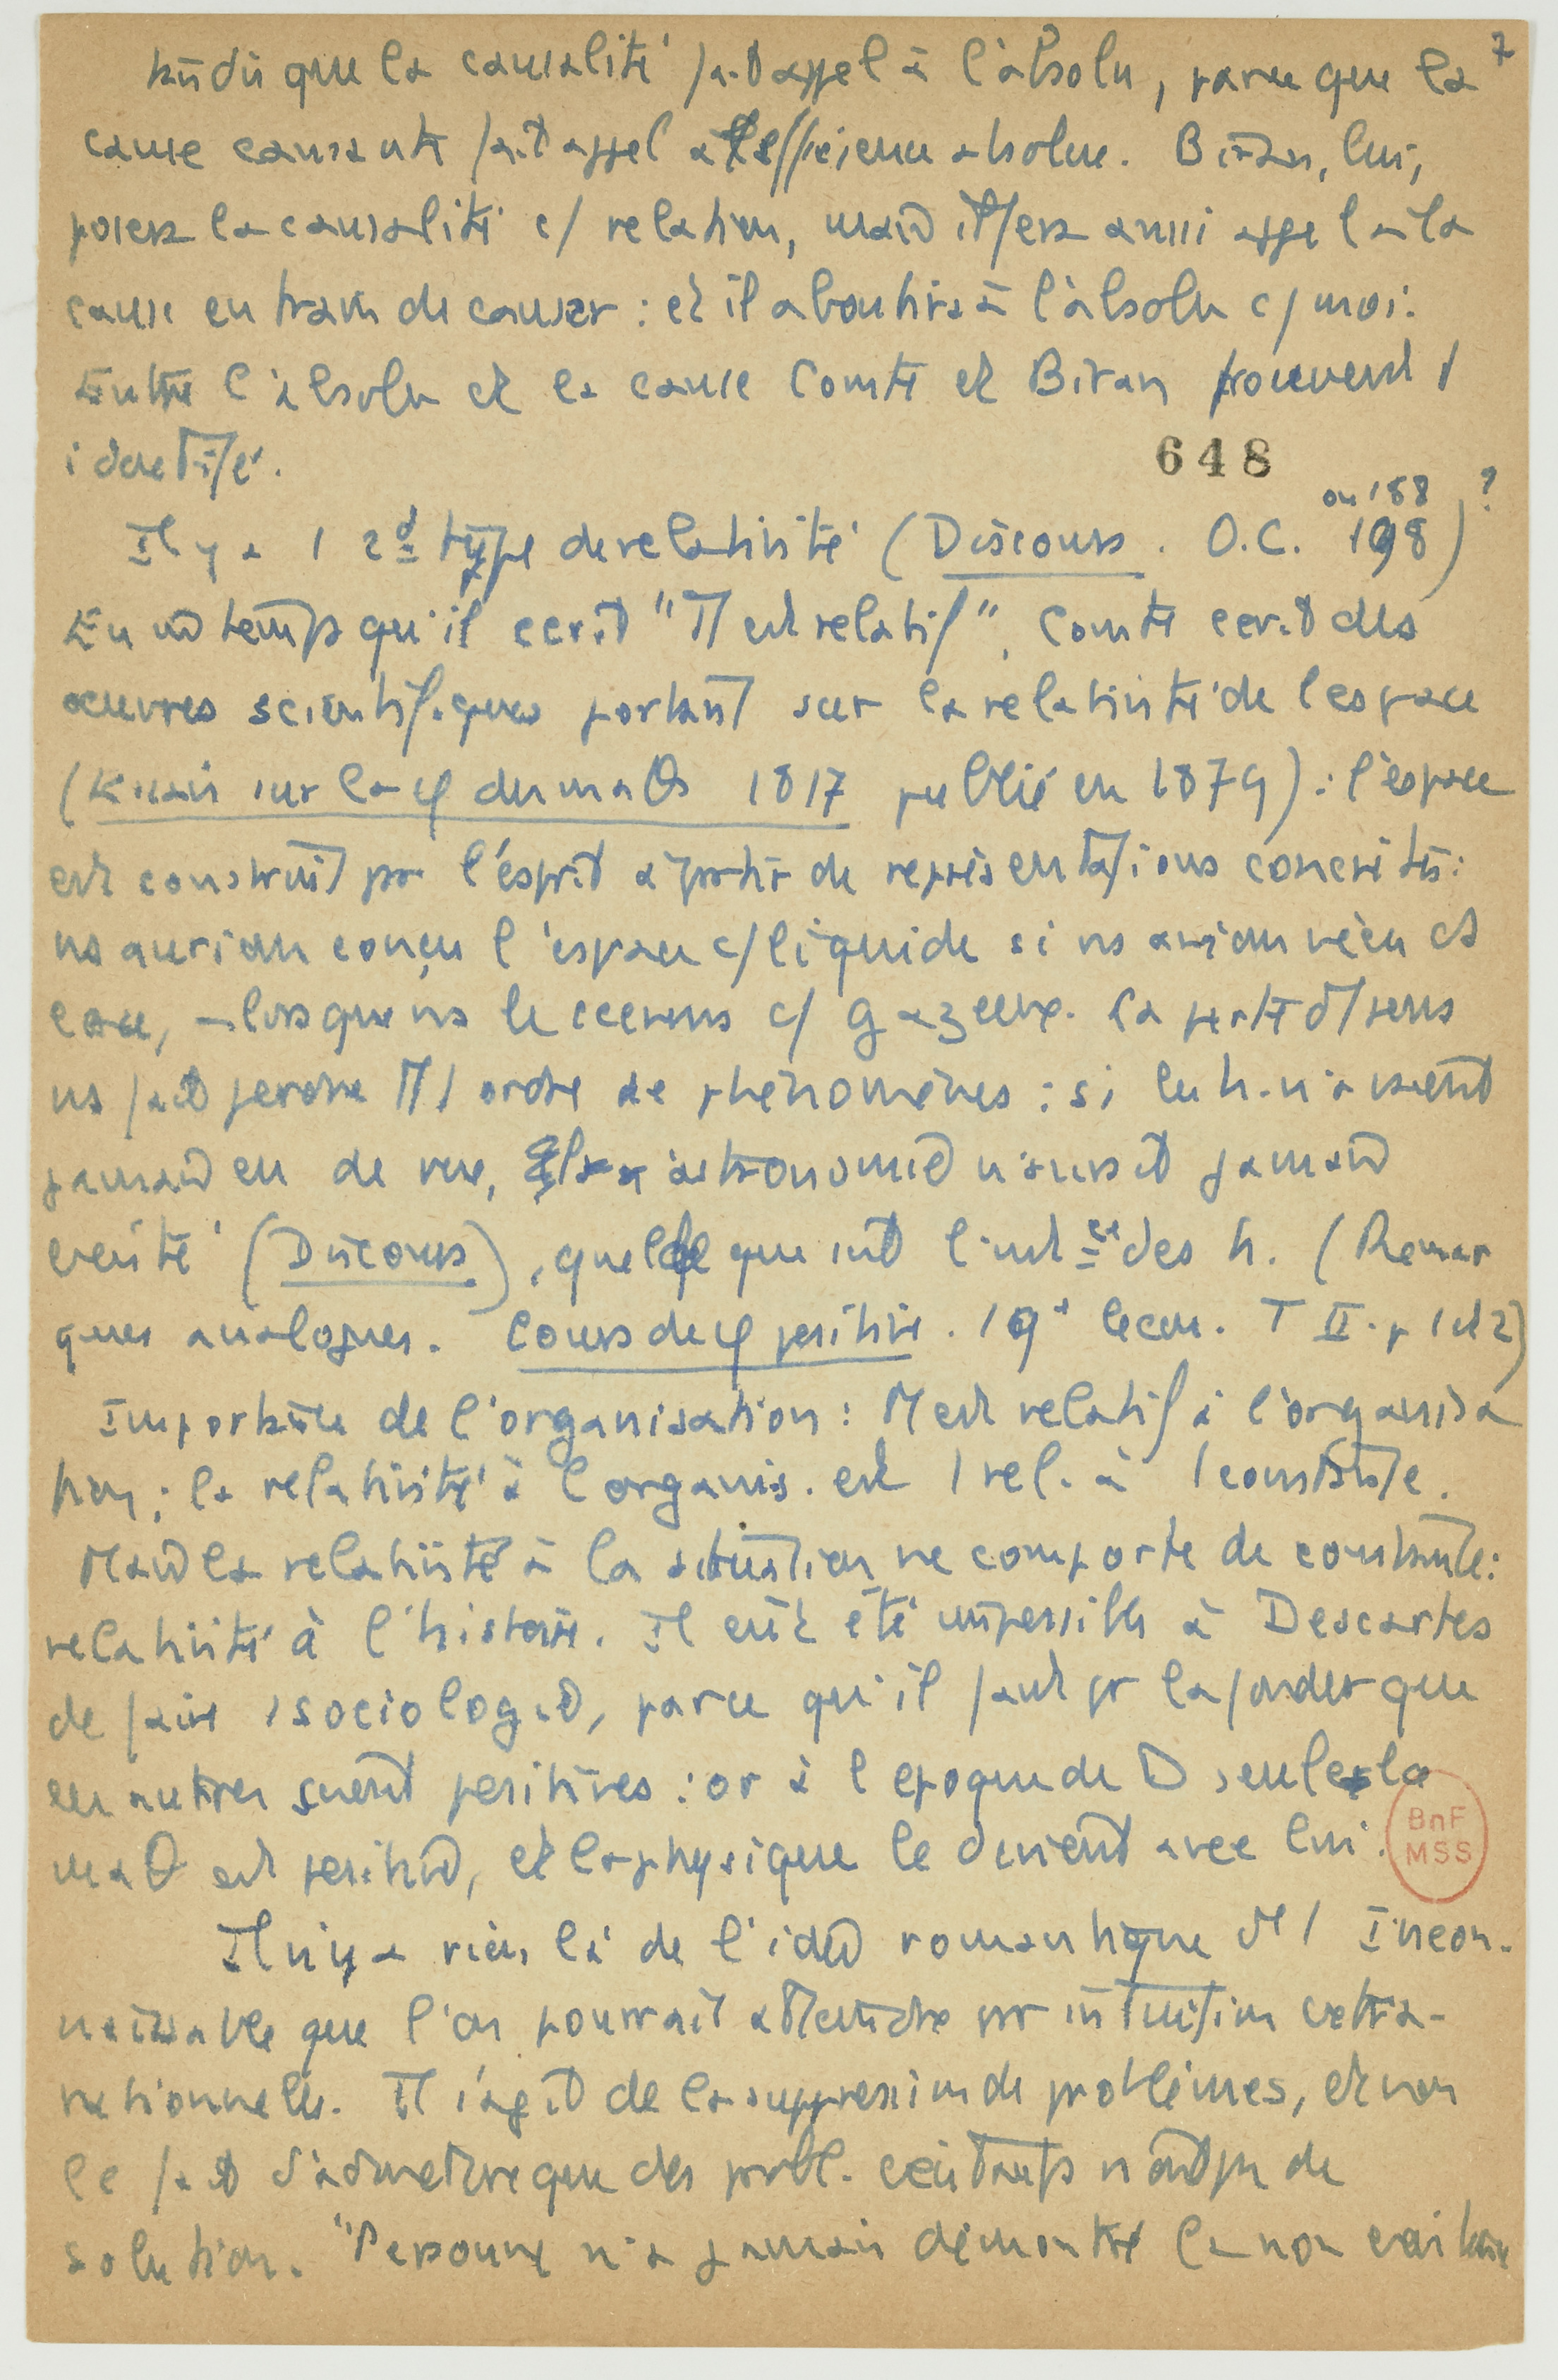 7
tandis que la causalité fait appel à l'absolu, parce que la
cause causante fait appel à l'efficience absolue. Biran, lui,
posera la causalité c/ relation, mais il fera aussi appel à la
cause en train de causer : et il aboutira à l'absolu c/ moi.
Entre l'absolu et la cause Comte et Biran trouvent 1
identité.
648
ou 188 ?
Il y a 1 2d type de relativité (Discours. O.C. 198)
En m temps qu'il écrit "Tt est relatif", Comte écrit des
oeuvres scientifiques portant sur la relativité de l'espace
(Essais sur la φ des maθs 1817 publié en 1879) : l'espace
est construit par l'esprit à partir de représentations concrètes :
ns aurions conçu l'espace c/ liquide si ns avions vécu ds
l'eau, alors que ns le concevons c/ gazeux. La perte d'1 sens
ns fait perdre tt 1 ordre de phénomènes : si les h. n'avaient
jamais eu de vue, l'astronomie n'aurait jamais
existé (Discours), quelle que soit l' des h. (Remar
ques analogues. Cours de φ positive. 19e leçon. T II. p 1 et 2)
Importance de l'organisation : Tt est relatif à l'organisa
tion ; la relativité à l'organis. est 1 rel. à 1 constante.
Mais la relativité à la situation ne comporte de constante :
relativité à l'histoire. Il eût été impossible à Descartes
de faire 1 sociologie, parce qu'il faut pr la fonder que
les autres soient positives : or à l'époque de D seule la
maθ est positive, et la physique le devient avec lui.
BnF
MSS
Il n'y a rien là de l'idée romantique d'1 Incon-
naissable que l'on pourrait atteindre par intuition extra-
rationnelle. Il s'agit de la suppression de problèmes, et non
le fait d'admettre que des probl. existants n'ont pas de
solution. "Personne n'a jamais démontré la non existence